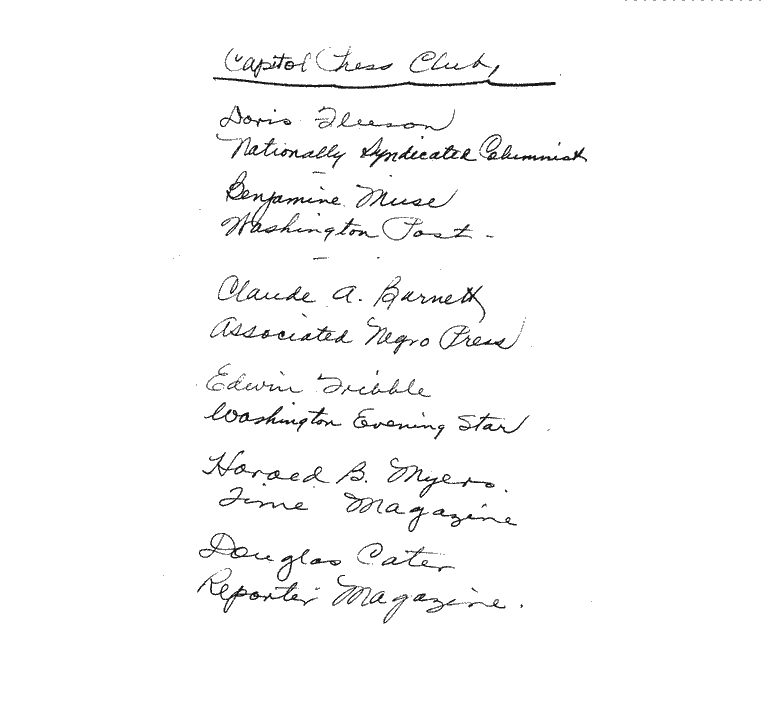 Capitol Press Club,
Doris Fleeson
Nationally Syndicated Columnist
Benjamine Muse
Washington Post -
Claude A. Barnett
Associated Negro Press
Edwin Tribble
Washington Evening Star
Harold B. Myers.
Time Magazine
Douglas Cater
Reporter Magazine.